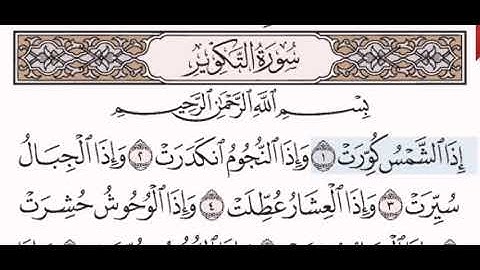 سُورَةُ التَّكْوِيرِ
بِسْمِ ٱللَّهِ ٱلرَّحْمَٰنِ ٱلرَّحِيمِ
إِذَا ٱلشَّمْسُ كُوِّرَتْ ١ وَإِذَا ٱلنُّجُومُ ٱنكَدَرَتْ ٢ وَإِذَا ٱلْجِبَالُ
سُيِّرَتْ ٣ وَإِذَا ٱلْعِشَارُ عُطِّلَتْ ٤ وَإِذَا ٱلْوُحُوشُ حُشِرَتْ